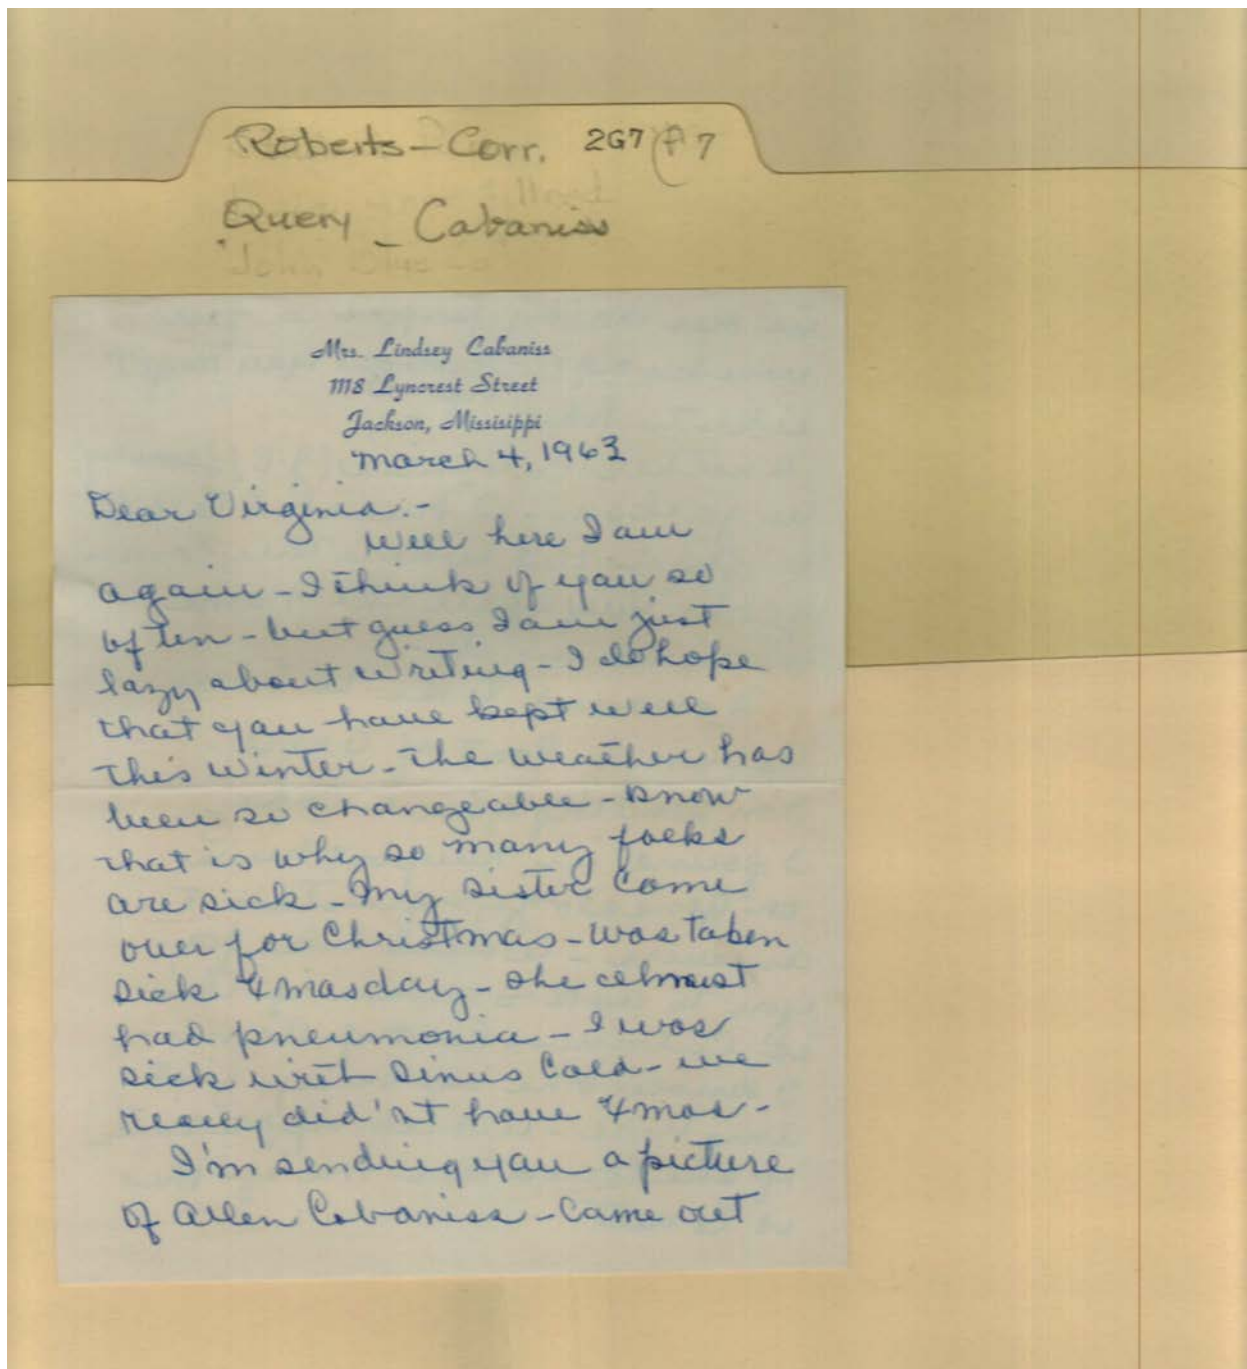 Roberts - Corr. 2G7 (F 7
Query - Cabaniss
Mrs. Lindsey Cabaniss
1118 Lyncrest Street
Jackson, Missisippi
March 4, 1963
Dear Virginia.-
Well here I am
again - I think of you so
often - but guess I am just
lazy about writing - I do hope
that you have kept well
this winter - the weather has
been so changeable - know
that is why so many folks
are sick - My sister came
over for Christmas - was taken
sick Xmas day - she almost
had pneumonia - I was
sick with sinus cold - we
really did'nt have Xmas -
I'm sending you a picture
of Allen Cabaniss - came out